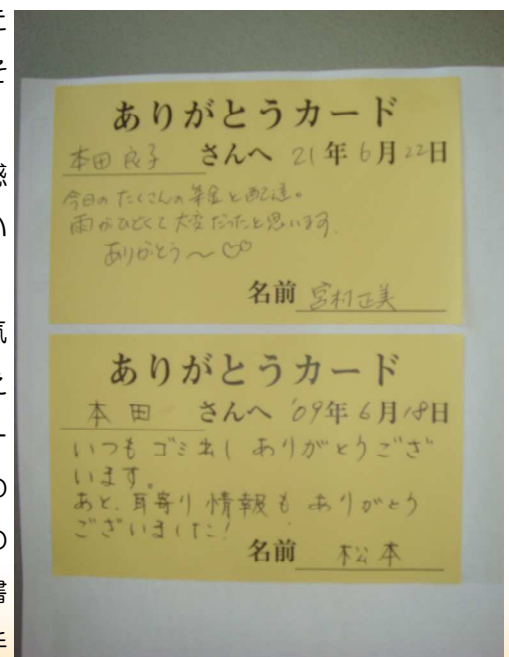 ありがとうカード
本田良子 さんへ 21年6月22日
今日の たくさんの 集金と配達。
雨がひどくて 大変だったと思います。
ありがとう〜♡♡
名前 宮村正美
ありがとうカード
本田 さんへ '09年6月18日
いつも ゴミ出し ありがとうござ
います。
あと、耳寄り情報も ありがとう
ございました!
名前 松本